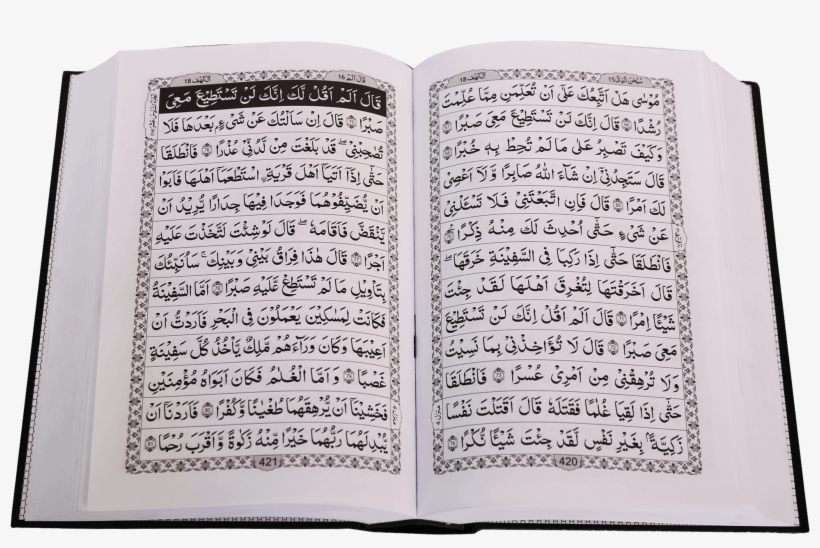 الكهف 18
سبحٰن الذى 15
مُوْسٰى هَلْ اَتَّبِعُكَ عَلٰٓى اَنْ تُعَلِّمَنِ مِمَّا عُلِّمْتَ
رُشْدًا ۝ قَالَ اِنَّكَ لَنْ تَسْتَطِيْعَ مَعِىَ صَبْرًا ۝
وَكَيْفَ تَصْبِرُ عَلٰى مَا لَمْ تُحِطْ بِهٖ خُبْرًا ۝
قَالَ سَتَجِدُنِىْٓ اِنْ شَآءَ اللّٰهُ صَابِرًا وَّلَاۤ اَعْصِىْ
لَكَ اَمْرًا ۝ قَالَ فَاِنِ اتَّبَعْتَنِىْ فَلَا تَسْـَٔلْنِىْ
عَنْ شَىْءٍ حَتّٰٓى اُحْدِثَ لَكَ مِنْهُ ذِكْرًا ۝
فَانْطَلَقَا حَتّٰٓى اِذَا رَكِبَا فِى السَّفِيْنَةِ خَرَقَهَا ؕ
قَالَ اَخَرَقْتَهَا لِتُغْرِقَ اَهْلَهَا لَقَدْ جِئْتَ
شَيْـًٔا اِمْرًا ۝ قَالَ اَلَمْ اَقُلْ اِنَّكَ لَنْ تَسْتَطِيْعَ
مَعِىَ صَبْرًا ۝ قَالَ لَا تُؤَاخِذْنِىْ بِمَا نَسِيْتُ
وَلَا تُرْهِقْنِىْ مِنْ اَمْرِىْ عُسْرًا ۝ فَانْطَلَقَا
حَتّٰٓى اِذَا لَقِيَا غُلٰمًا فَقَتَلَهٗ قَالَ اَقَتَلْتَ نَفْسًا
زَكِيَّةًۢ بِغَيْرِ نَفْسٍ لَقَدْ جِئْتَ شَيْـًٔا نُّكْرًا ۝
420
الكهف 18
قال الم 16
قَالَ اَلَمْ اَقُلْ لَّكَ اِنَّكَ لَنْ تَسْتَطِيْعَ مَعِىَ
صَبْرًا ۝ قَالَ اِنْ سَاَلْتُكَ عَنْ شَىْءٍۢ بَعْدَهَا فَلَا
تُصٰحِبْنِىْ ۚ قَدْ بَلَغْتَ مِنْ لَّدُنِّىْ عُذْرًا ۝ فَانْطَلَقَا
حَتّٰٓى اِذَآ اَتَيَآ اَهْلَ قَرْيَةِ ۨاسْتَطْعَمَآ اَهْلَهَا فَاَبَوْا
اَنْ يُّضَيِّفُوْهُمَا فَوَجَدَا فِيْهَا جِدَارًا يُّرِيْدُ اَنْ
يَّنْقَضَّ فَاَقَامَهٗ ؕ قَالَ لَوْ شِئْتَ لَتَّخَذْتَ عَلَيْهِ
اَجْرًا ۝ قَالَ هٰذَا فِرَاقُ بَيْنِىْ وَبَيْنِكَ ۚ سَاُنَبِّئُكَ
بِتَاْوِيْلِ مَا لَمْ تَسْتَطِعْ عَّلَيْهِ صَبْرًا ۝ اَمَّا السَّفِيْنَةُ
فَكَانَتْ لِمَسٰكِيْنَ يَعْمَلُوْنَ فِى الْبَحْرِ فَاَرَدْتُّ اَنْ
اَعِيْبَهَا وَكَانَ وَرَآءَهُمْ مَّلِكٌ يَّاْخُذُ كُلَّ سَفِيْنَةٍ
غَصْبًا ۝ وَاَمَّا الْغُلٰمُ فَكَانَ اَبَوٰهُ مُؤْمِنَيْنِ
فَخَشِيْنَآ اَنْ يُّرْهِقَهُمَا طُغْيَانًا وَّكُفْرًا ۝ فَاَرَدْنَآ اَنْ
يُّبْدِلَهُمَا رَبُّهُمَا خَيْرًا مِّنْهُ زَكٰوةً وَّاَقْرَبَ رُحْمًا ۝
421